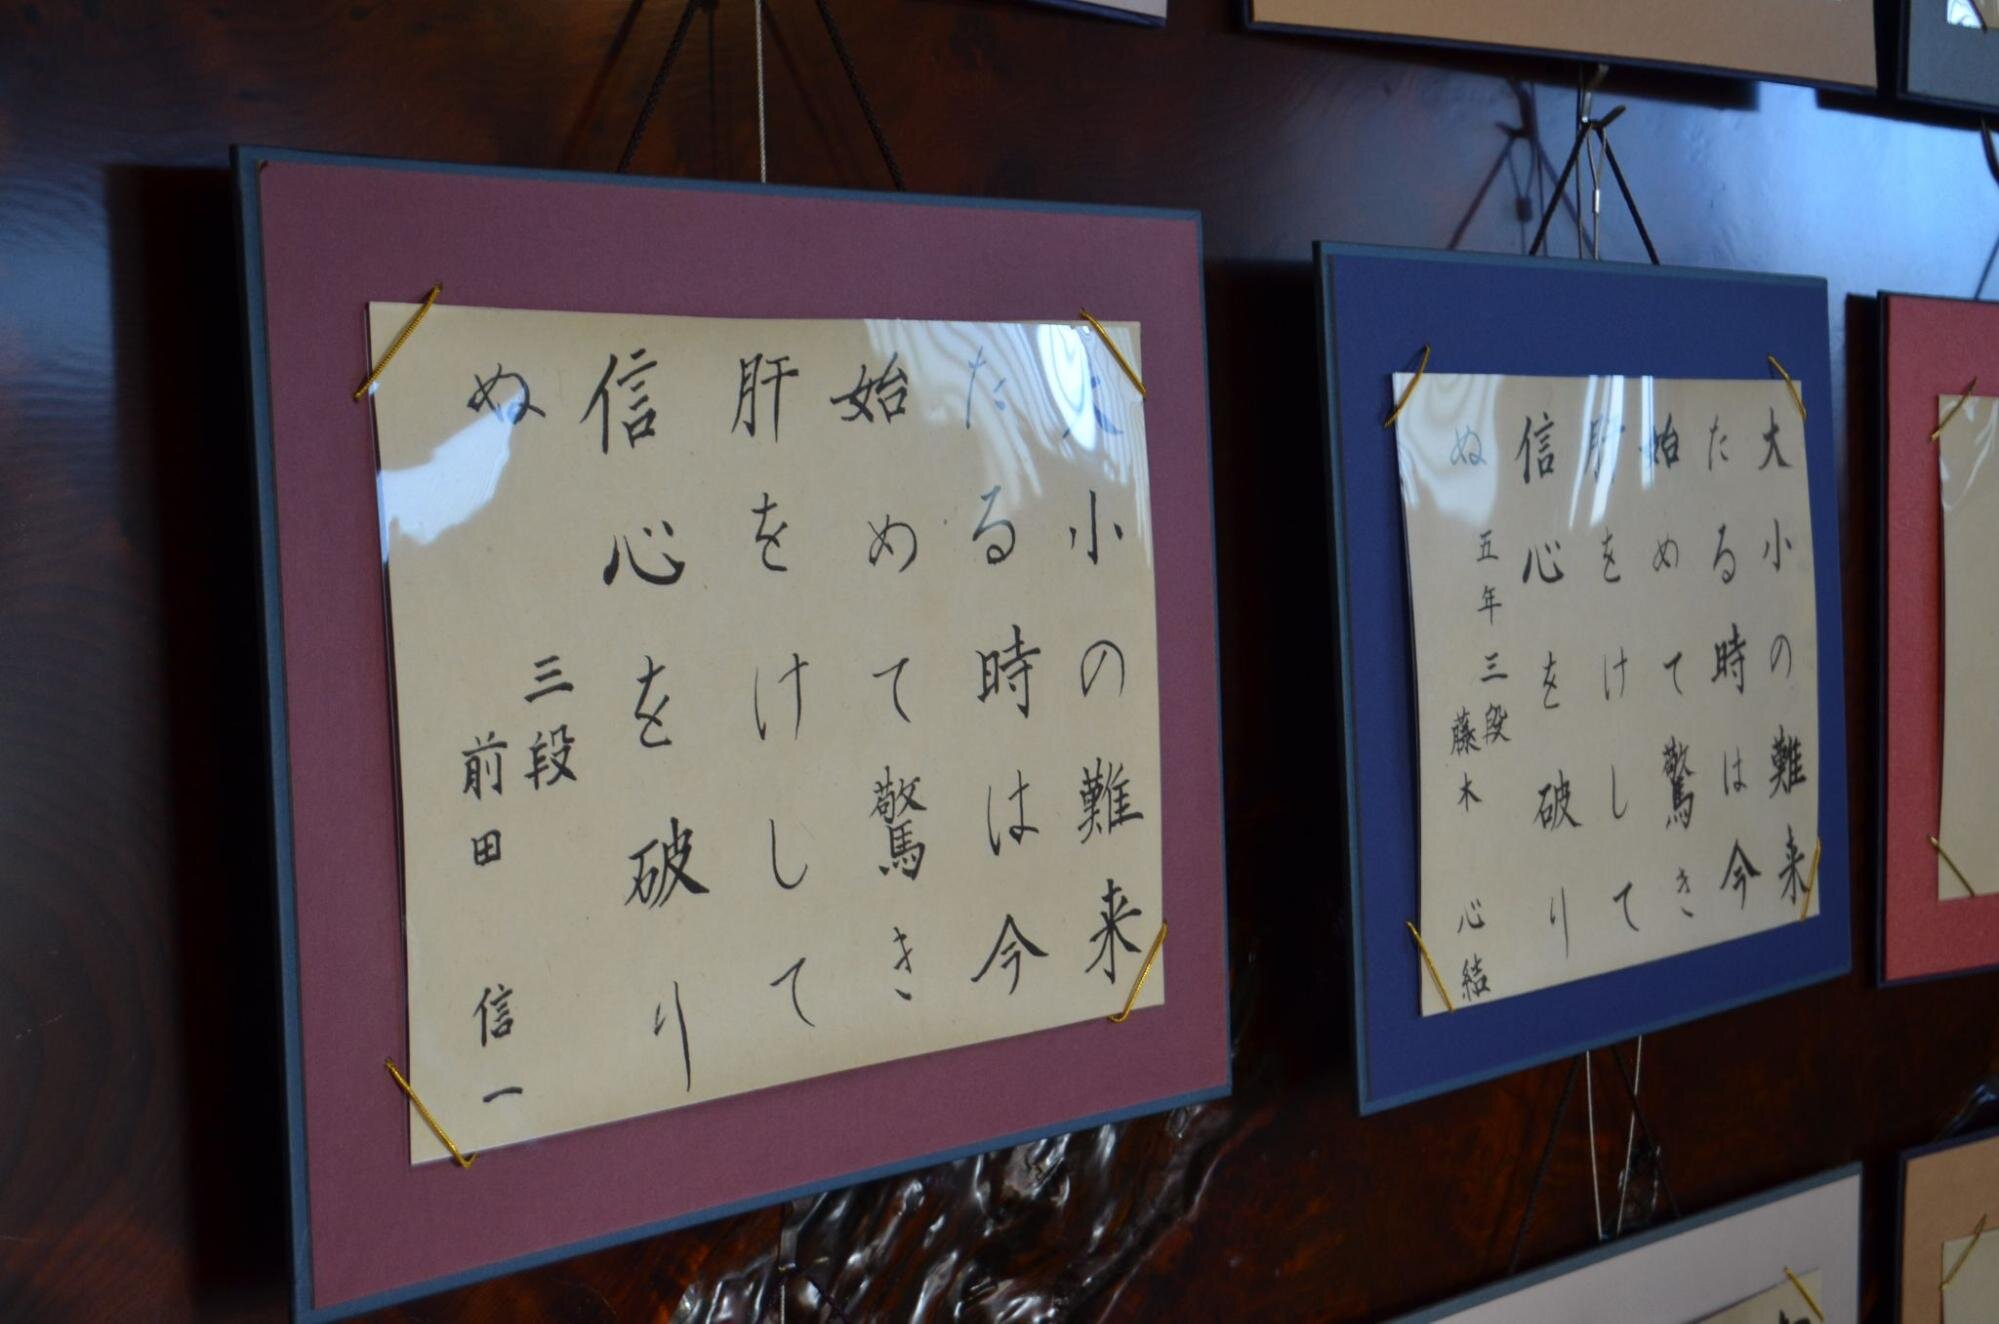 大小の難来
たる時は今
始めて驚き
肝をけして
信心を破り
ぬ
三段
前田 信一
大小の難来
たる時は今
始めて驚き
肝をけして
信心を破り
ぬ
五年 三段
藤木 心結